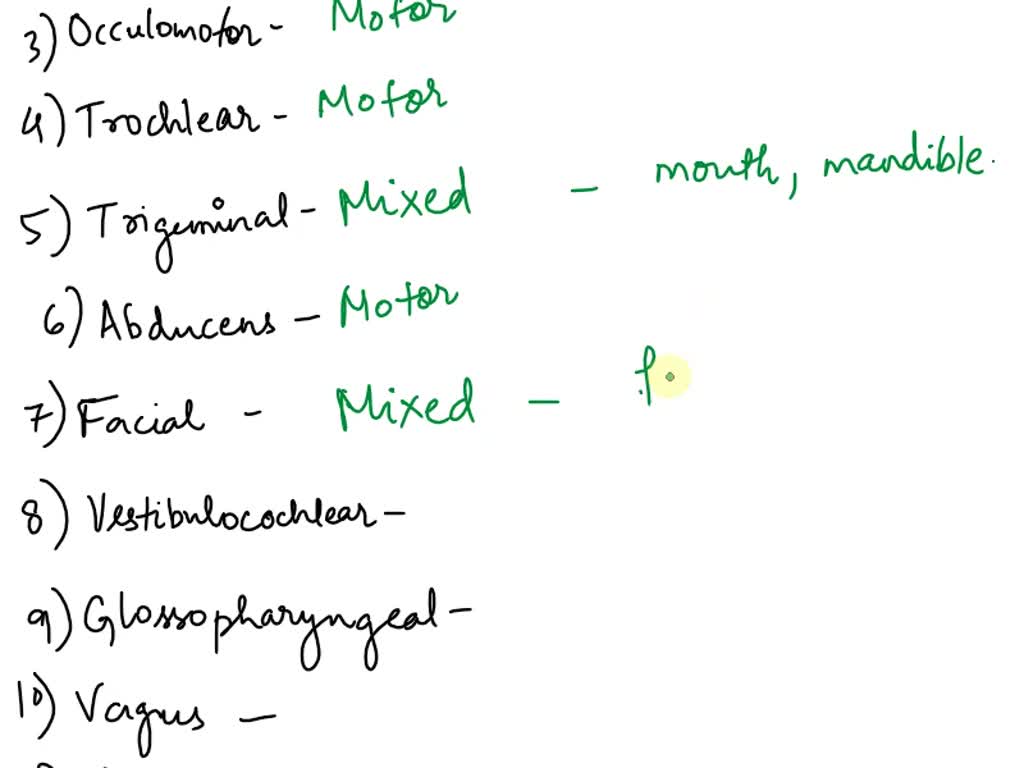 3) Occulomotor - Motor
4) Trochlear - Motor
5) Trigeminal - Mixed - mouth, mandible.
6) Abducens - Motor
7) Facial - Mixed - f
8) Vestibulocochlear -
9) Glossopharyngeal -
10) Vagus -